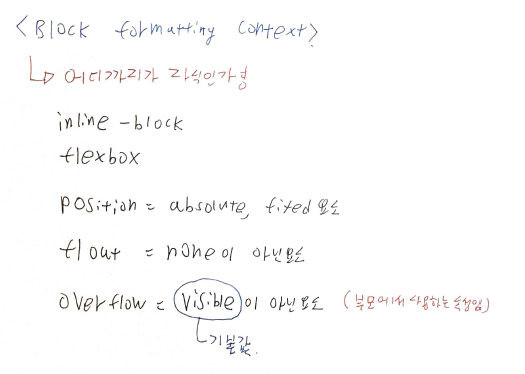 <Block formatting context>
어디까지가 자식인가헝
inline-block
flexbox
position = absolute, fixed 요소
float = none이 아닌요소
overflow = visible이 아닌요소 (부모에서 사용하는 속성임)
기본값.